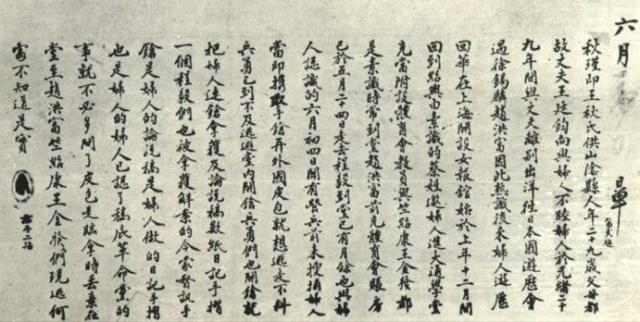 六月
秋瑾即王秋氏供山陰縣人年二十九歲父母都
故丈夫王廷鈞向與婦人不睦婦人於光緒二十
九年間與丈夫離別出洋往日本國遊歷會
過徐錫麟趙洪富因此熟識後來婦人遊歷
回華在上海開設女報館始於上年十二月間
回到紹興由素識的蔡姓邀婦人進大通學堂
充當附設體育會教員與竺紹康王金發都
是素識時常到堂趙洪富前充體育會賬房
已於五月二十四走去程毅到堂已有月餘也與婦
人認識的六月初四日聞有營兵前來搜捕婦人
當即携取手鎗并外國皮包就想逃走不料
兵勇已到不及逃避堂內開鎗兵勇們也開鎗就
把婦人連鎗拿獲及論說稿數紙日記手摺
一個程毅們也被拿獲解案的今蒙督訊手
鎗是婦人的論說稿是婦人做的日記手摺
也是婦人的婦人已認了稿底革命黨的
事就不必多問了皮包是臨拿時丟棄在
堂至趙洪富竺紹康王金發們現逃何
處不知道是實